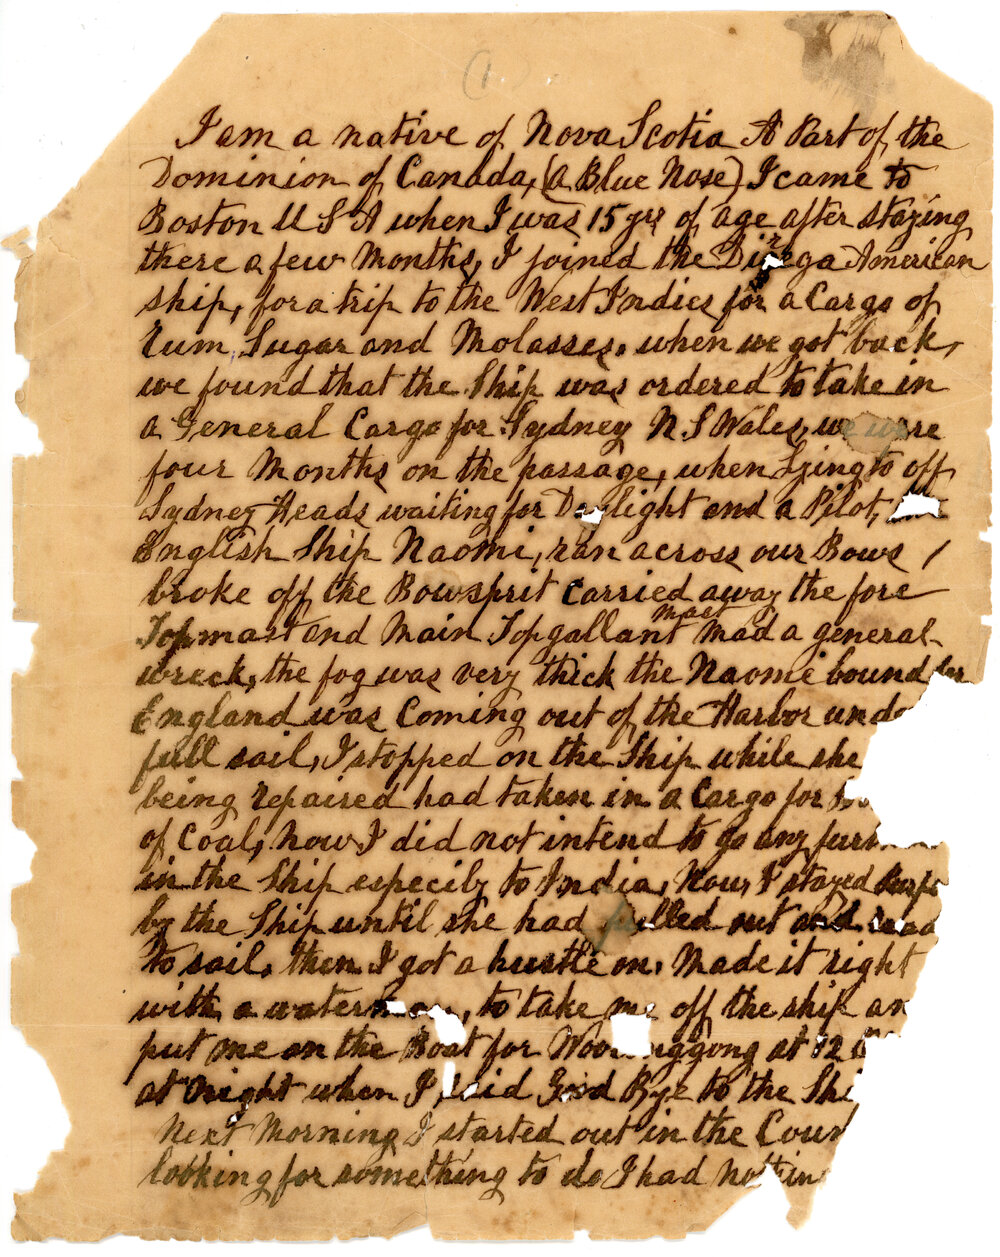 (1)
I am a native of Nova Scotia A Part of the
Dominion of Canada, (a Blue Nose) I came to
Boston U S A when I was 15 yrs of age after staying
there a few Months, I joined the Dirigo American
ship, for a trip to the West Indies for a Cargo of
Rum, Sugar and Molasses, when we got back,
we found that the Ship was ordered to take in
a General Cargo for Sydney N.S Wales, we were
four Months on the passage, when Lying to off
Sydney Heads waiting for Daylight and a Pilot,
English Ship Naomi, ran across our Bows
broke off the Bowsprit Carried away the fore
Topmast and Main Topgallant mast Mad a general
wreck, the fog was very thick the Naomi bound for
England was Coming out of the Harbor unde
full sail, I stopped on the Ship while she
being repaired had taken in a Cargo for
of Coal, Now I did not intend to go any fur
in the Ship especily to India, Now, I stayed
by the Ship until she had pulled out and
to sail, then I got a hustle on, Made it right
with a waterman, to take me off the ship an
put me on the Boat for Woolonggong at 12
at night when I said Good Bye to the Shi
Next Morning I started out in the Coun
looking for something to do I had nothin